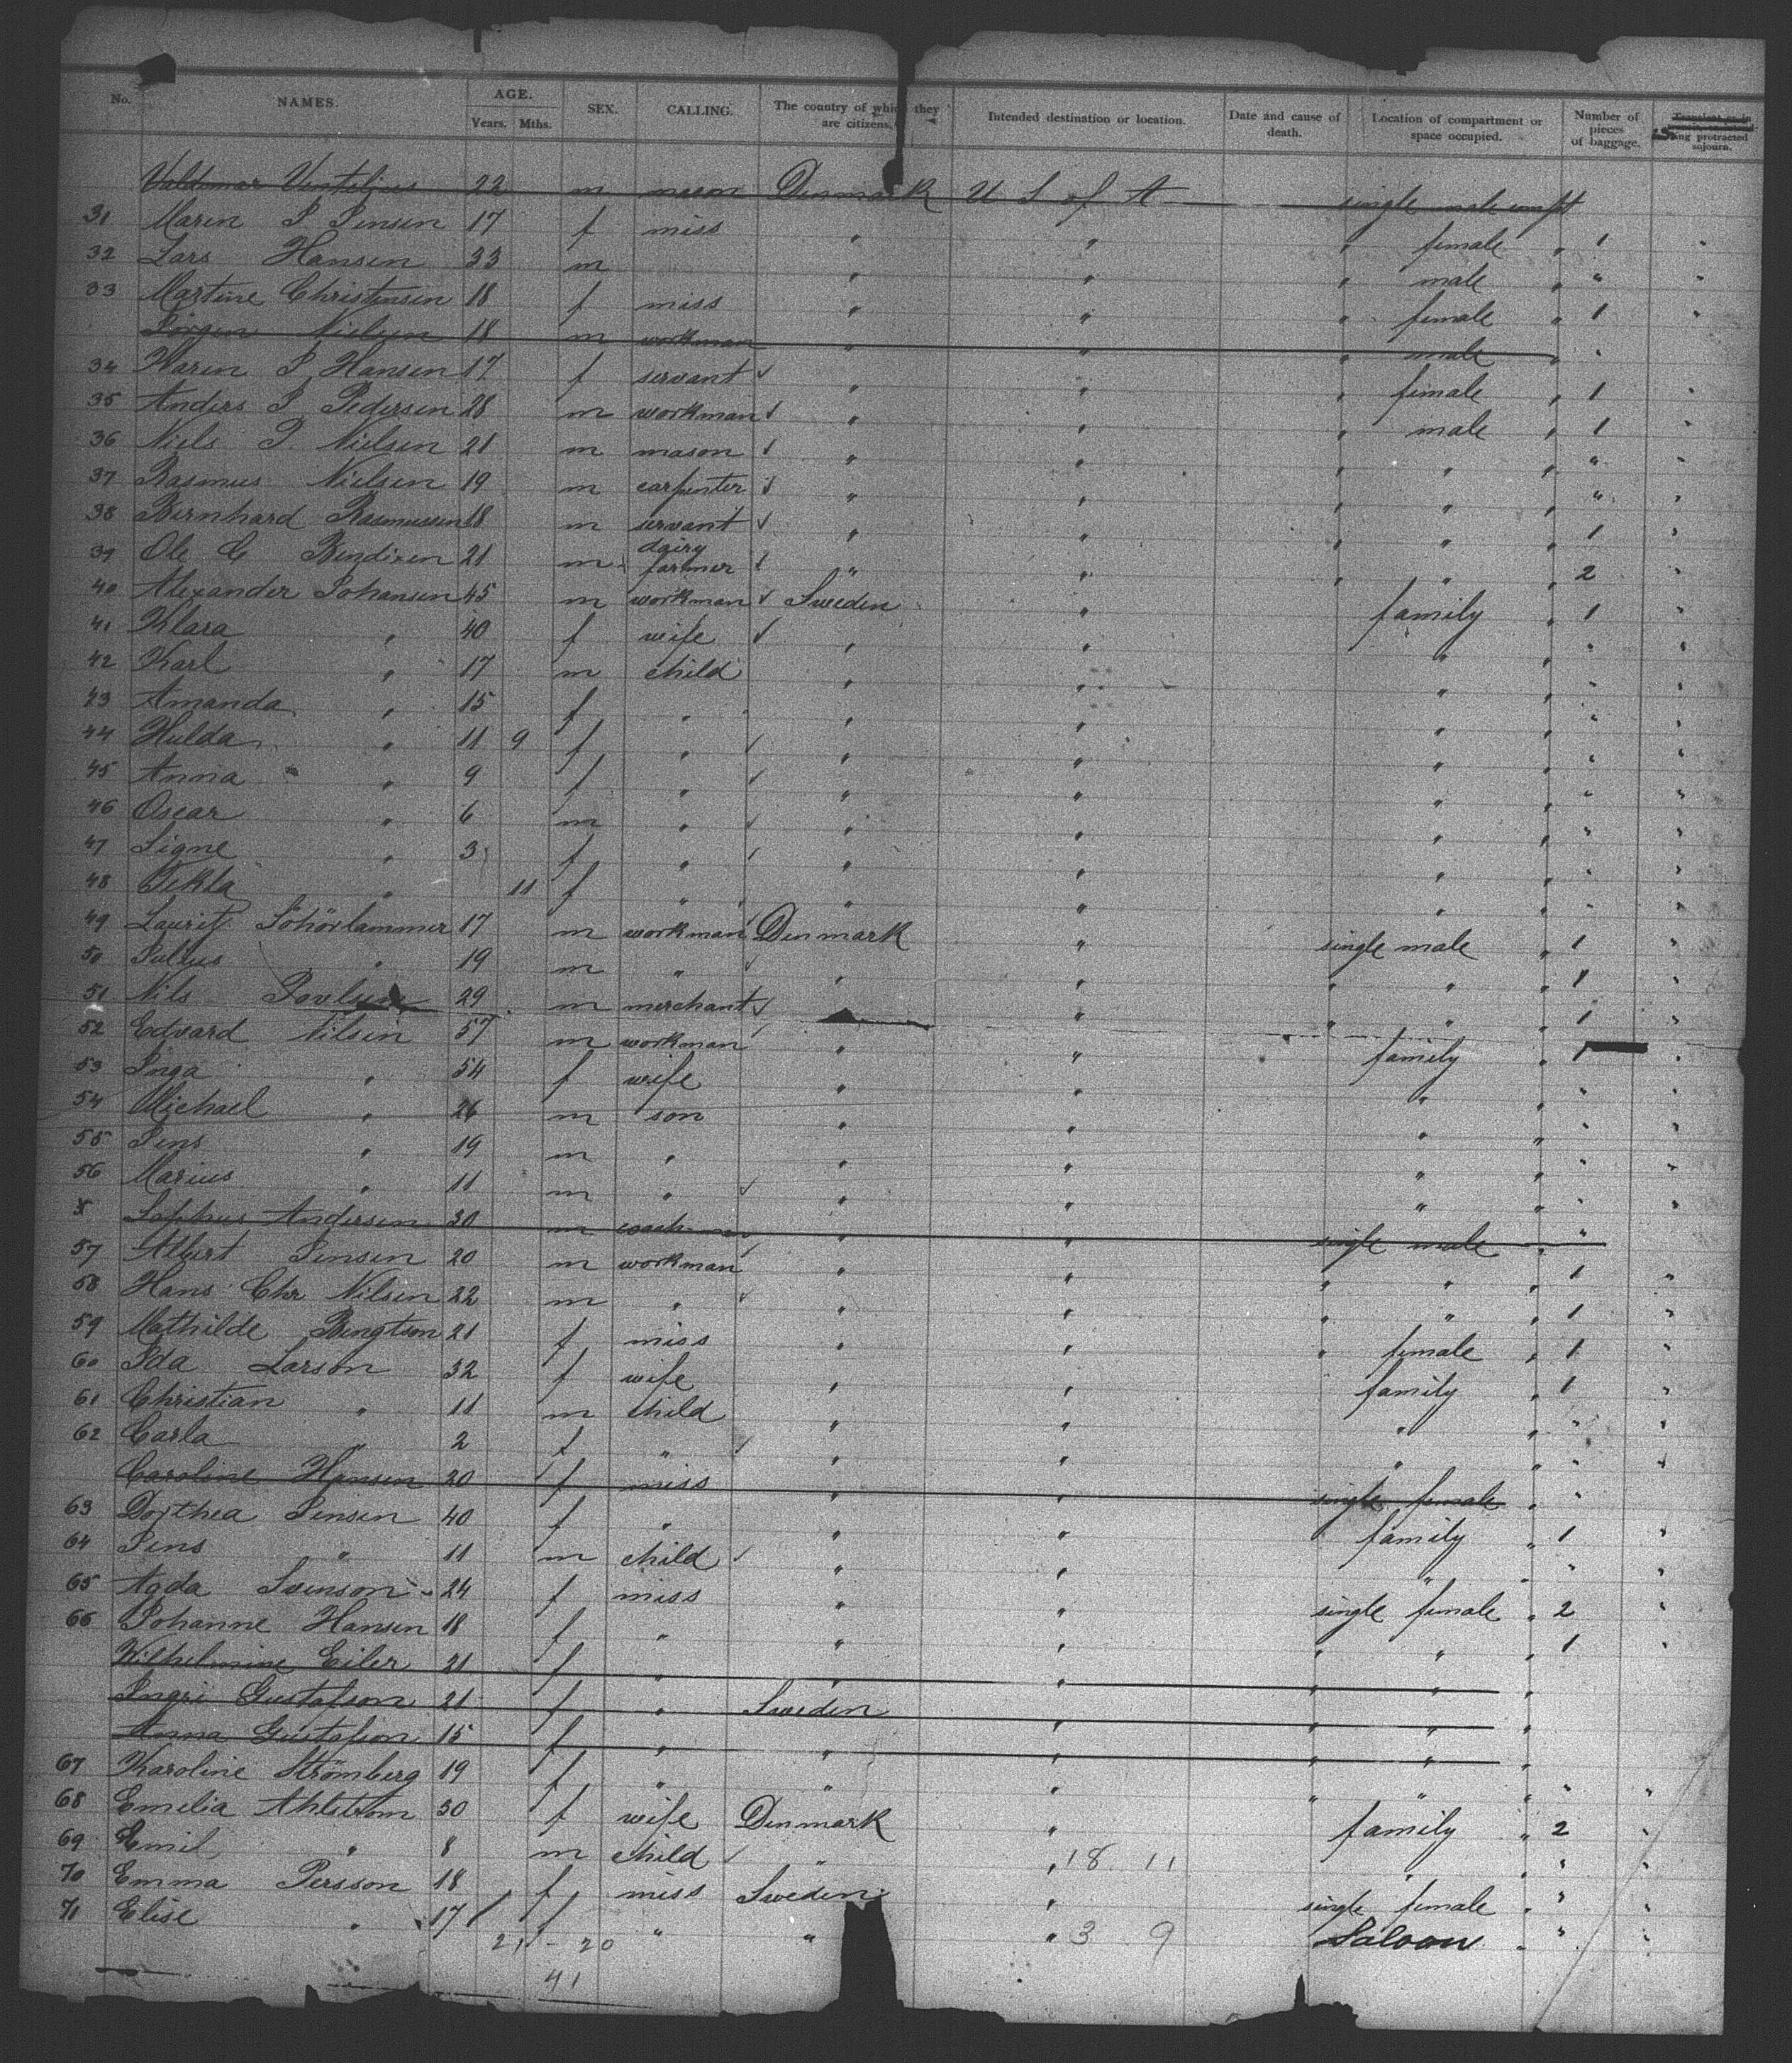 No. NAMES. AGE. Years. Mths. SEX. CALLING. The country of which they are citizens. Intended destination or location. Date and cause of death. Location of compartment or space occupied. Number of pieces of baggage. protracted sojourn.
Valdemar 22 m mason Denmark U S of A single male compt
31 Maren P Jensen 17 f miss " " " female " 1 "
32 Lars Hansen 33 m " " " male " " "
33 Martine Christensen 18 f miss " " " female " 1 "
Jörgen Nielsen 18 m workman " " " male " "
34 Karen P Hansen 17 f servant ✓ " " " female " 1 "
35 Anders P Pedersen 28 m workman ✓ " " " male " 1 "
36 Niels P Nielsen 21 m mason ✓ " " " " " " "
37 Rasmus Nielsen 19 m carpenter ✓ " " " " " " "
38 Bernhard Rasmussen 18 m servant ✓ " " " " " 1 "
39 Ole C Bendixen 21 m dairy farmer ✓ " " " " " 2 "
40 Alexander Johansen 45 m workman ✓ Sweden " family " 1 "
41 Klara " 40 f wife ✓ " " " " " "
42 Karl " 17 m child " " " " " "
43 Amanda " 15 f " " " " " " "
44 Hulda " 11 9 f " ✓ " " " " " "
45 Anna " 9 f " ✓ " " " " " "
46 Oscar " 6 m " ✓ " " " " " "
47 Signe " 3 f " ✓ " " " " " "
48 Tekla " 11 f " " " " " " "
49 Lauritz Schörlammer 17 m workman ✓ Denmark " single male " 1 "
50 Julius " 19 m " ✓ " " " " " 1 "
51 Nils Povlsen 29 m merchant ✓ " " " " 1 "
52 Edvard Nilsen 57 m workman ✓ " " family " 1 "
53 Inga " 54 f wife " " " " " "
54 Michael " 26 m son " " " " " "
55 Jens " 19 m " " " " " " "
56 Marius " 11 m " ✓ " " " " " "
x Sophus Andersen 30 m coachman " " single male " "
57 Albert Jensen 20 m workman ✓ " " " " " 1 "
58 Hans Chr Nilsen 22 m " ✓ " " " " " 1 "
59 Mathilde Bengtson 21 f miss " " " female " 1 "
60 Ida Larson 32 f wife " " family " 1 "
61 Christian " 11 m child " " " " " "
62 Carla " 2 f " ✓ " " " " " "
Caroline Hansen 20 f miss " " single female " "
63 Dorthea Jensen 40 f " " " family " 1 "
64 Jens " 11 m child ✓ " " " " " "
65 Agda Svenson 24 f miss " " single female " 2 "
66 Johanne Hansen 18 f " " " " " " 1 "
Wilhelmine Eiler 21 f " " " " " "
Ingri Gustafson 21 f " Sweden " " " "
Anna Gustafson 15 f " " " " " "
67 Karoline Strömberg 19 f " " " " " " " "
68 Emelia Ahlstrom 30 f wife Denmark " family " 2 "
69 Emil " 8 m child ✓ " " 18 11 " " " "
70 Emma Persson 18 f miss Sweden " single female " " "
71 Elise " 17 f " " " 3 9 Saloon " " "
21 - 20
41